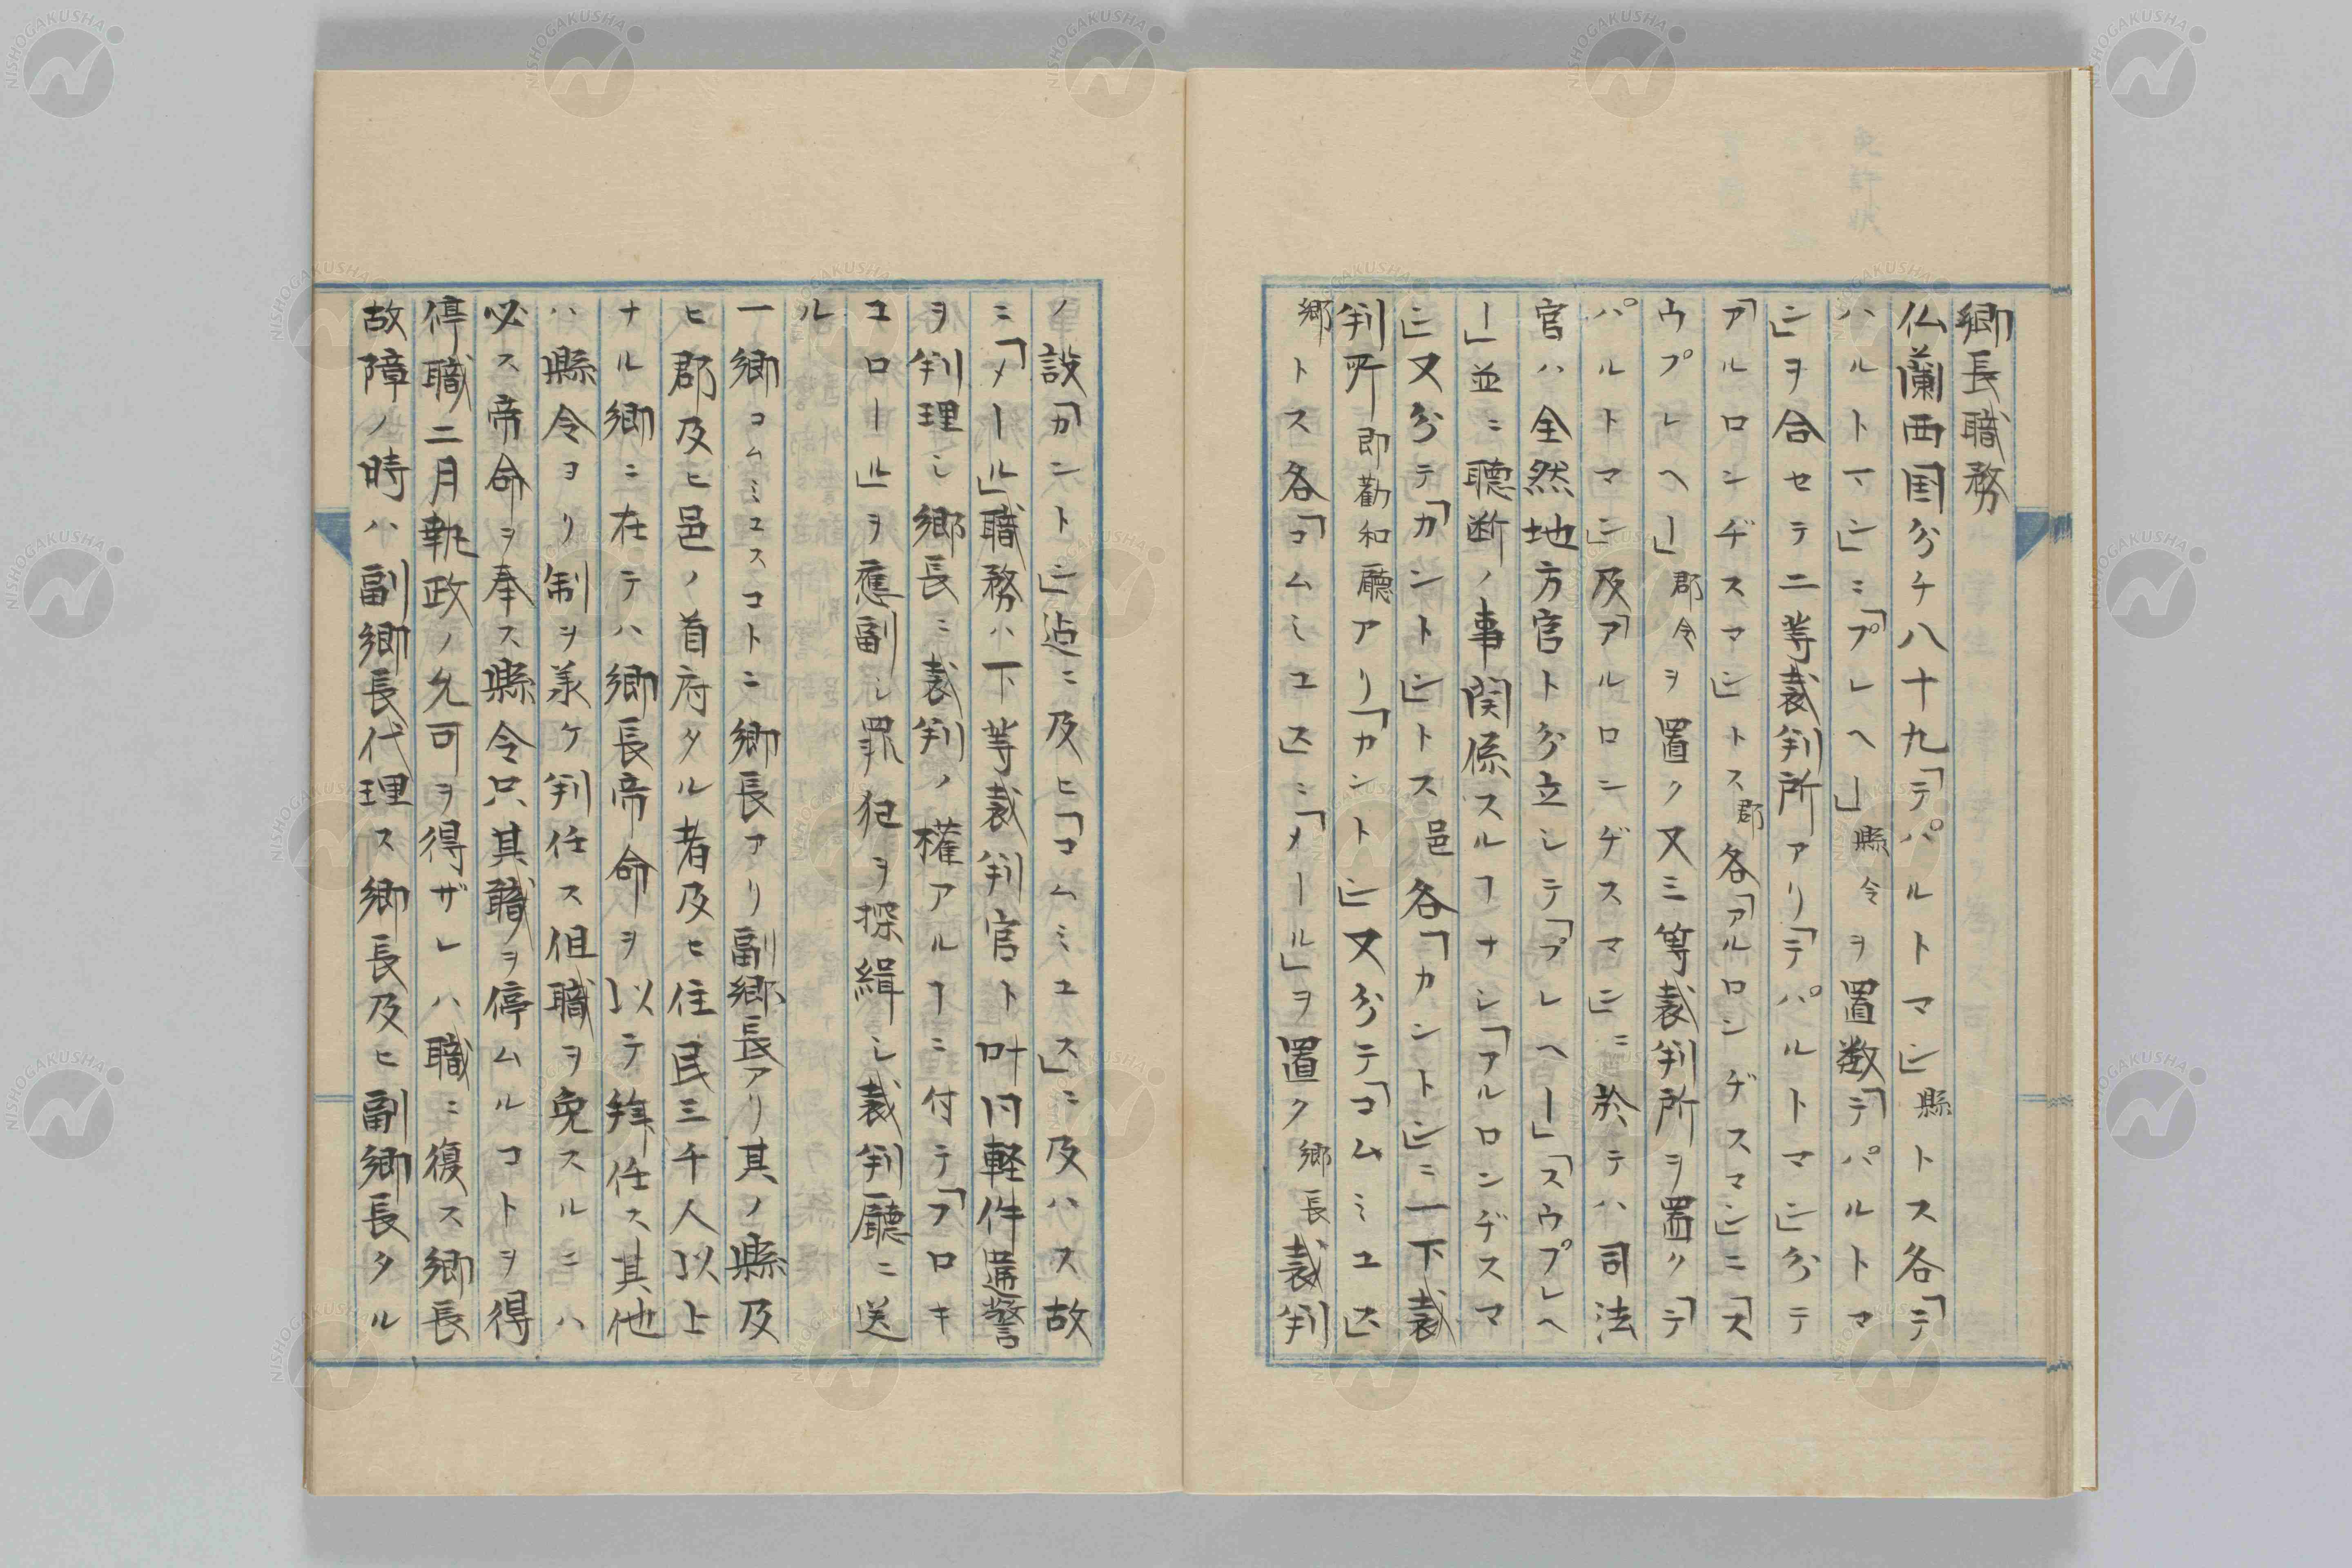 郷長職務
仏蘭西国分チ八十九「デパルトマン」縣トス各「デ
パルトマン」ニ「プレヘー」縣令ヲ置数「デパルトマ
ン」ヲ合セテ二等裁判所アリ「デパルトマン」分テ
「アルロンヂスマン」トス郡各「アルロンヂスマン」ニ「ス
ウプレヘー」郡令ヲ置ク又三等裁判所ヲ置ク「デ
パルトマン」及「アルロンヂスマン」ニ於テハ司法
官ハ全然地方官ト分立シテ「プレヘー」「スウプレヘ
ー」並ニ聴断ノ事関係スルヿナシ「アルロンヂスマ
ン」又分テ「カントン」トス邑各「カントン」ニ一下裁
判所即勸和廳アリ「カントン」又分テ「コムミユス」
郷トス各「コムミユス」ニ「メール」ヲ置ク郷長裁判
ノ設「カントン」迠ニ及ヒ「コムミユス」ニ及ハス故
ニ「メール」職務ハ下等裁判官ト叶同軽件違警
ヲ判理シ郷長ニ裁判ノ權アルヿニ付テ「プロキ
ユロール」ヲ應副シ罪犯ヲ探緝シ裁判廳ニ送
ル
一郷コムミユスコトニ郷長アリ副郷長アリ其ノ縣及
ヒ郡及ヒ邑ノ首府タル者及ヒ住民三千人以上
ナル郷ニ在テハ郷長帝命ヲ以テ拜任ス其他
ハ縣令ヨリ制ヲ羕ケ判任ス但職ヲ免スルニハ
必ス帝命ヲ奉ス縣令只其職ヲ停ムルコトヲ得
停職二月執政ノ允可ヲ得ザレハ職ニ復ス郷長
故障ノ時ハ副郷長代理ス郷長及ヒ副郷長タル